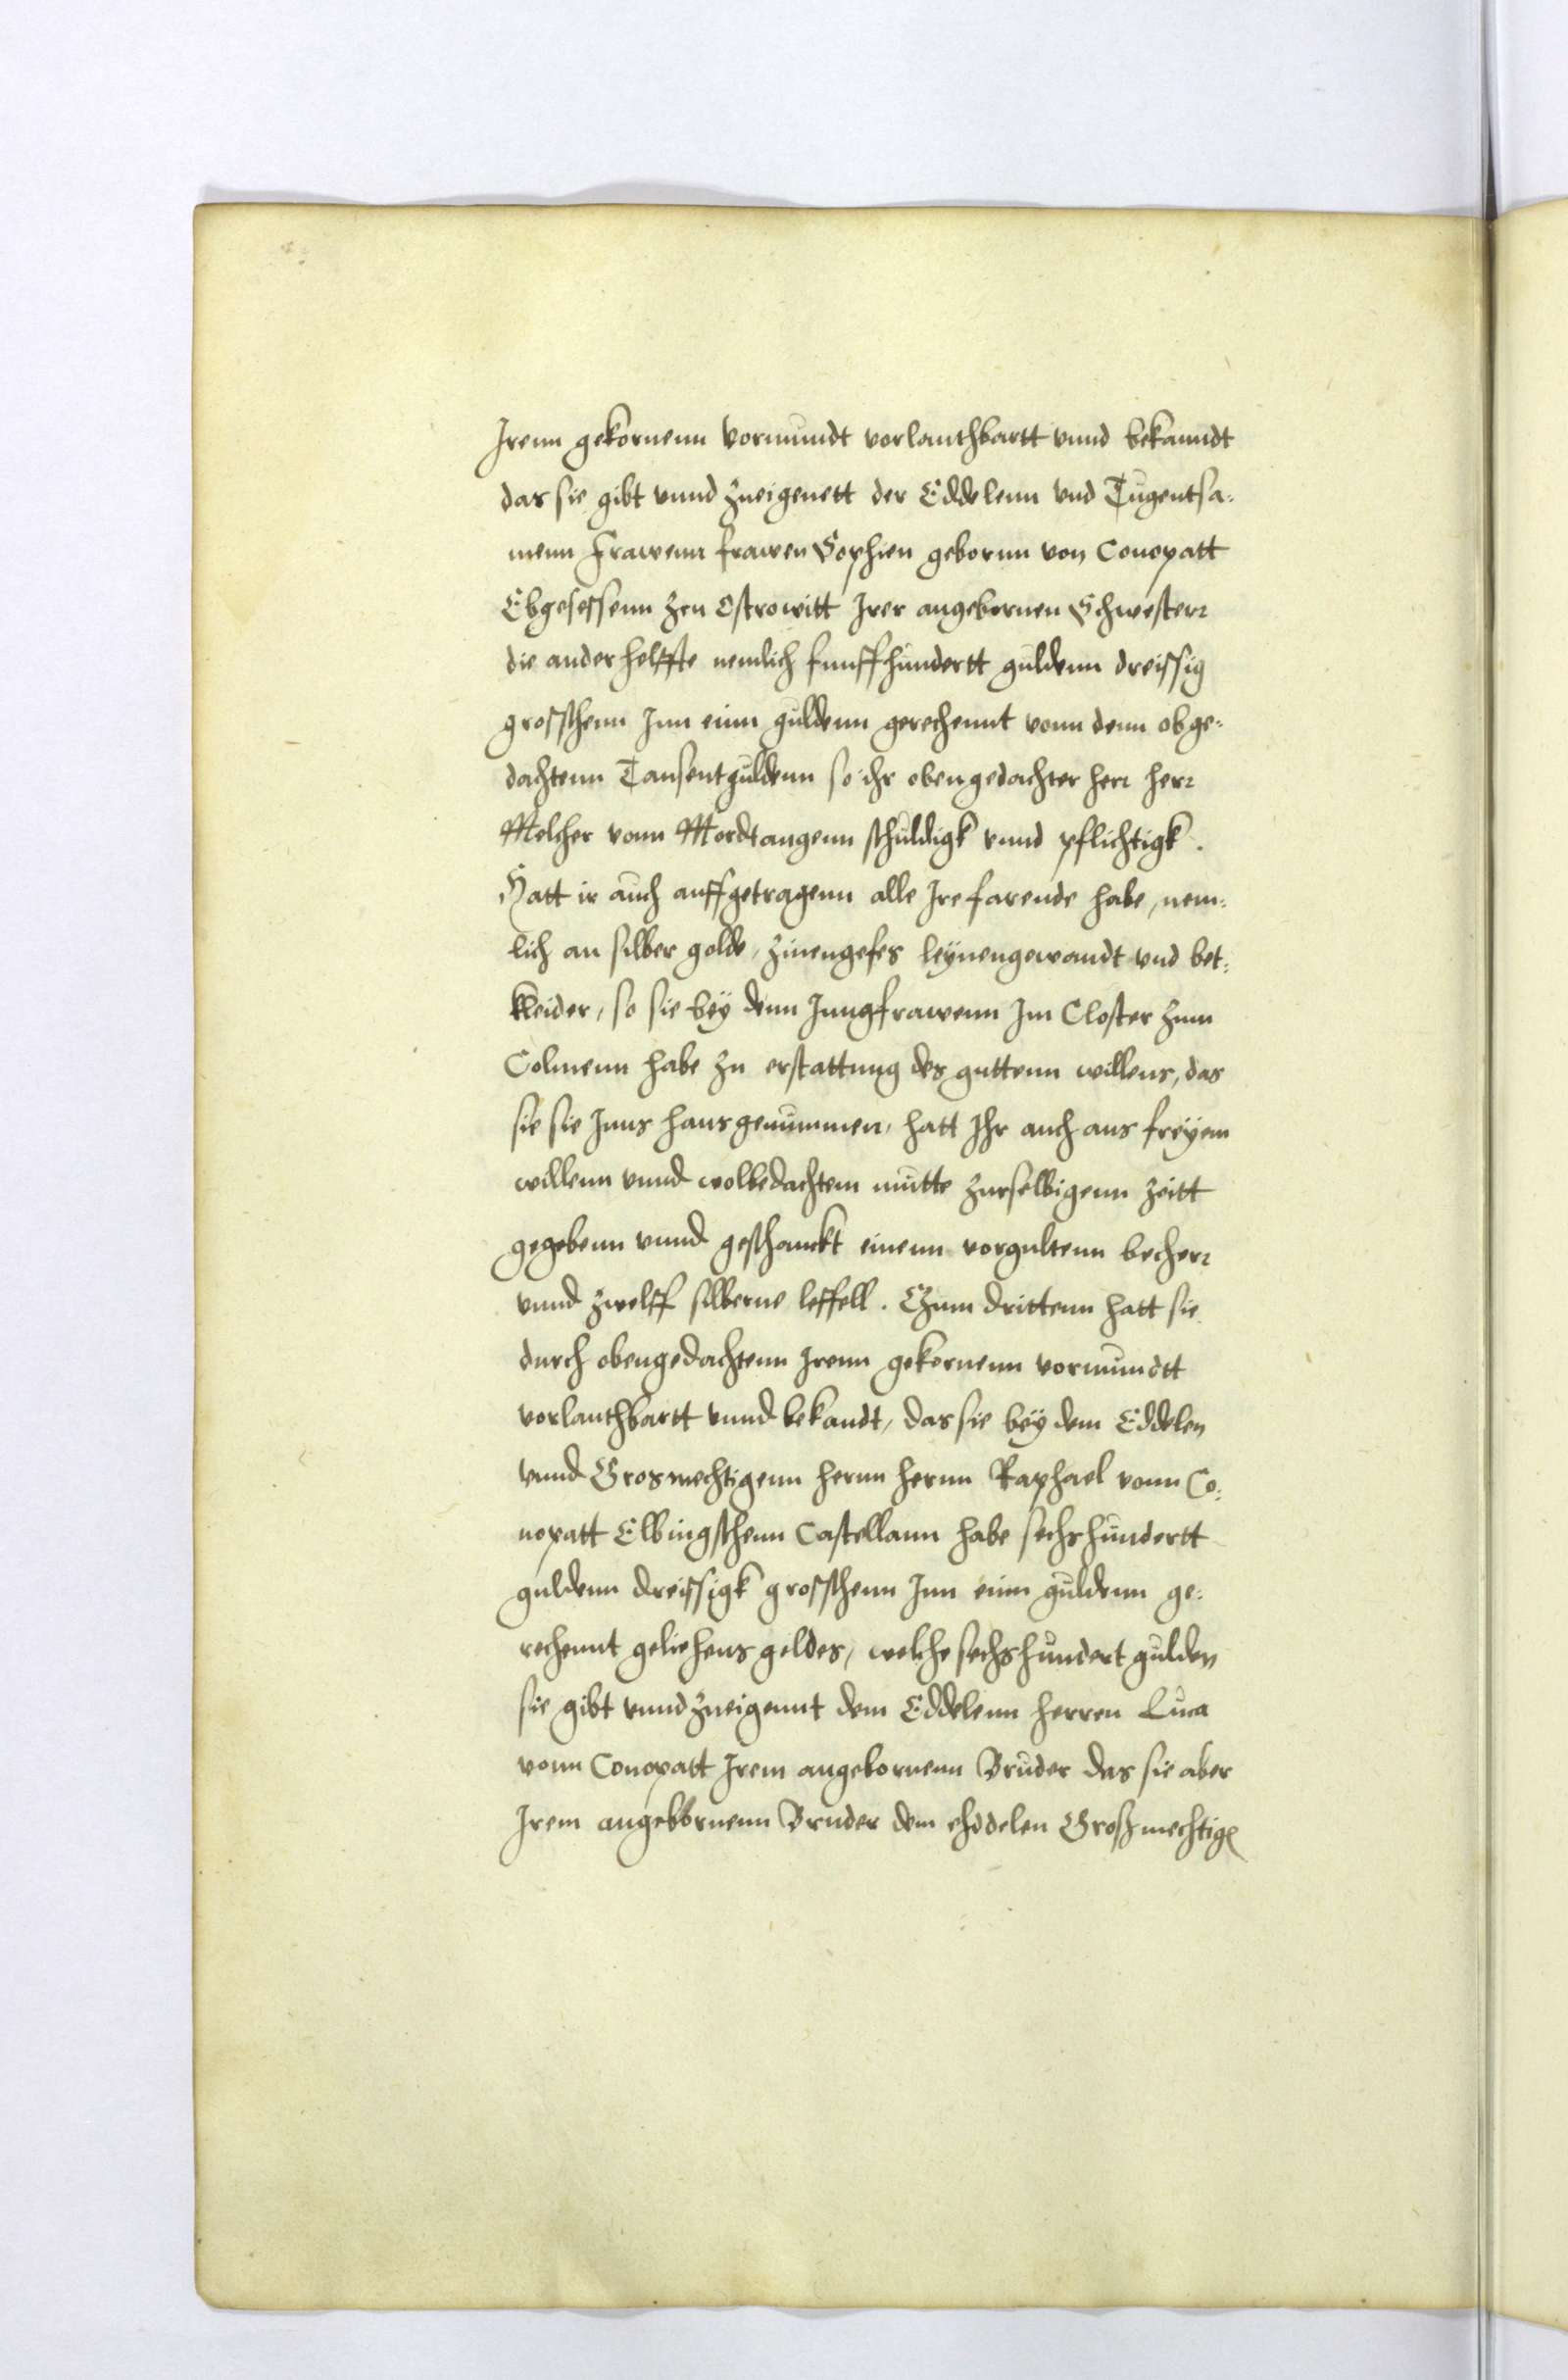 Irenn gekornenn vormundt vorlauthbartt vnnd bekanndt
das sie gibt vnnd zueigenett der Eddelenn vnd Tugentsa-
menn Frawenn frawen Sophien gebornn von Conopatt
Ebgesessenn zcu Ostrowitt Irer angebornen Schwesterr
die ander helffte nemlich funffhundertt guldenn dreissig
grosschenn Inn einn guldenn gerechennt vonn denn obge-
dachtenn Tausentguldenn so ihr obengedachter herr herr
Melcher vonn Mordtangenn schuldigk vnnd pflichtigk.
Hatt ir auch auffgetragenn alle Ire farende habe, nem-
lich an silber golde, zinengefes leynengewandt vnd bet-
kleider, so sie bey denn Jungfrawenn Im Closter zum
Colmenn habe zu erstattung des guttenn willens, das
sie sie Inns haus genummen, hatt Ihr auch aus freyem
willenn vnnd wolbedachtem mutte zurselbigenn zeitt
gegebenn vnnd geschanckt einenn vorgultenn becherr
vnnd zwelff silberne leffell. Czum drittenn hatt sie
durch obengedachtenn Irenn gekornenn vormundtt
vorlauthbartt vnnd bekandt, das sie bey dem Eddelen
vnnd Grosmechtigenn hernn hernn Raphael vonn Co-
nopatt Elbingschenn Castellann habe sechshundertt
guldenn dreissigk grosschenn Inn einn guldenn ge-
rechennt geliehens geldes, welche sechshundert gulden
sie gibt vnnd zueigennt dem Eddelenn herren Luca
vonn Conopatt Irem angebornenn Bruder das sie aber
Irem angebornenn Bruder dem ehddelen Großmechtigen